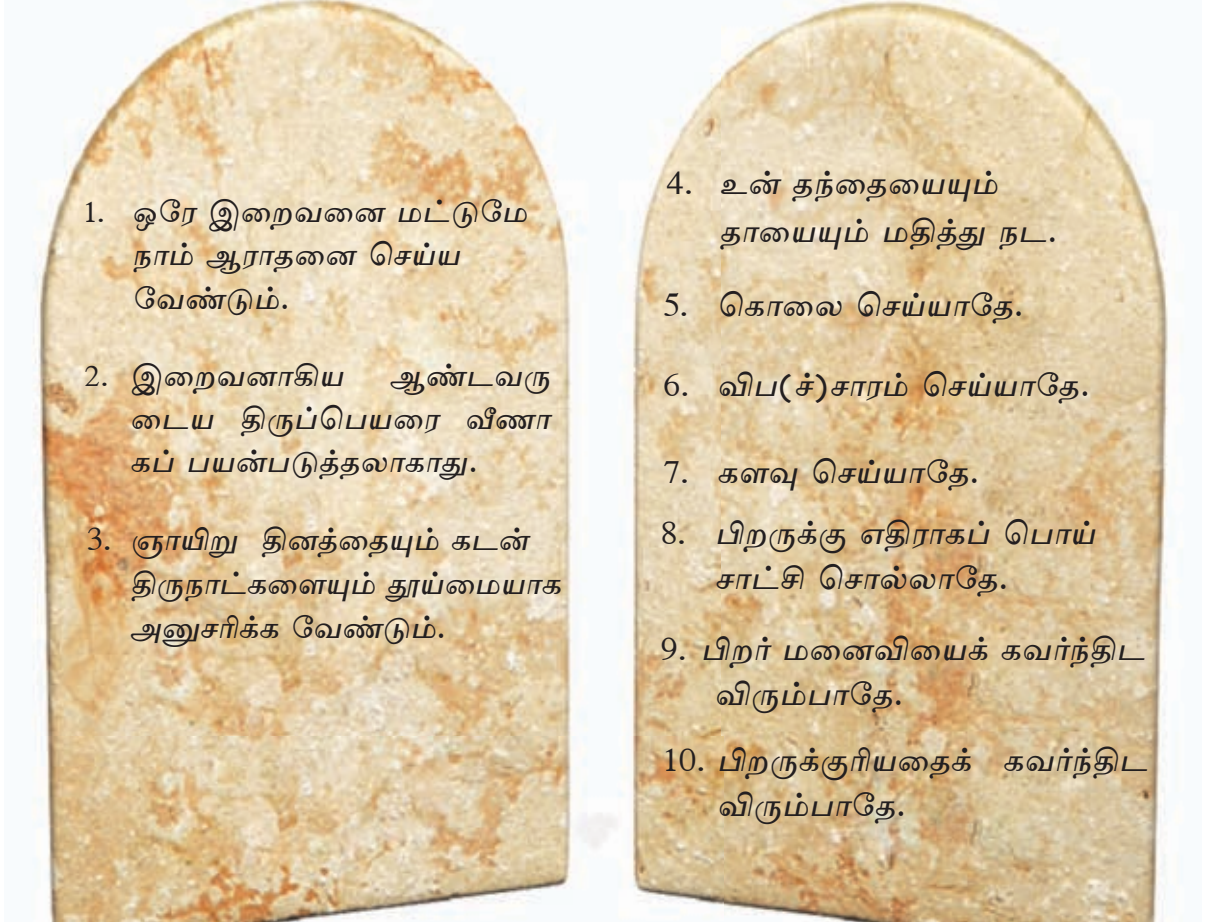 1. ஒரே இறைவனை மட்டுமே
நாம் ஆராதனை செய்ய
வேண்டும்.
2. இறைவனாகிய ஆண்டவரு
டைய திருப்பெயரை வீணா
கப் பயன்படுத்தலாகாது.
3. ஞாயிறு தினத்தையும் கடன்
திருநாட்களையும் தூய்மையாக
அனுசரிக்க வேண்டும்.
4. உன் தந்தையையும்
தாயையும் மதித்து நட.
5. கொலை செய்யாதே.
6. விப(ச்)சாரம் செய்யாதே.
7. களவு செய்யாதே.
8. பிறருக்கு எதிராகப் பொய்
சாட்சி சொல்லாதே.
9. பிறர் மனைவியைக் கவர்ந்திட
விரும்பாதே.
10. பிறருக்குரியதைக் கவர்ந்திட
விரும்பாதே.